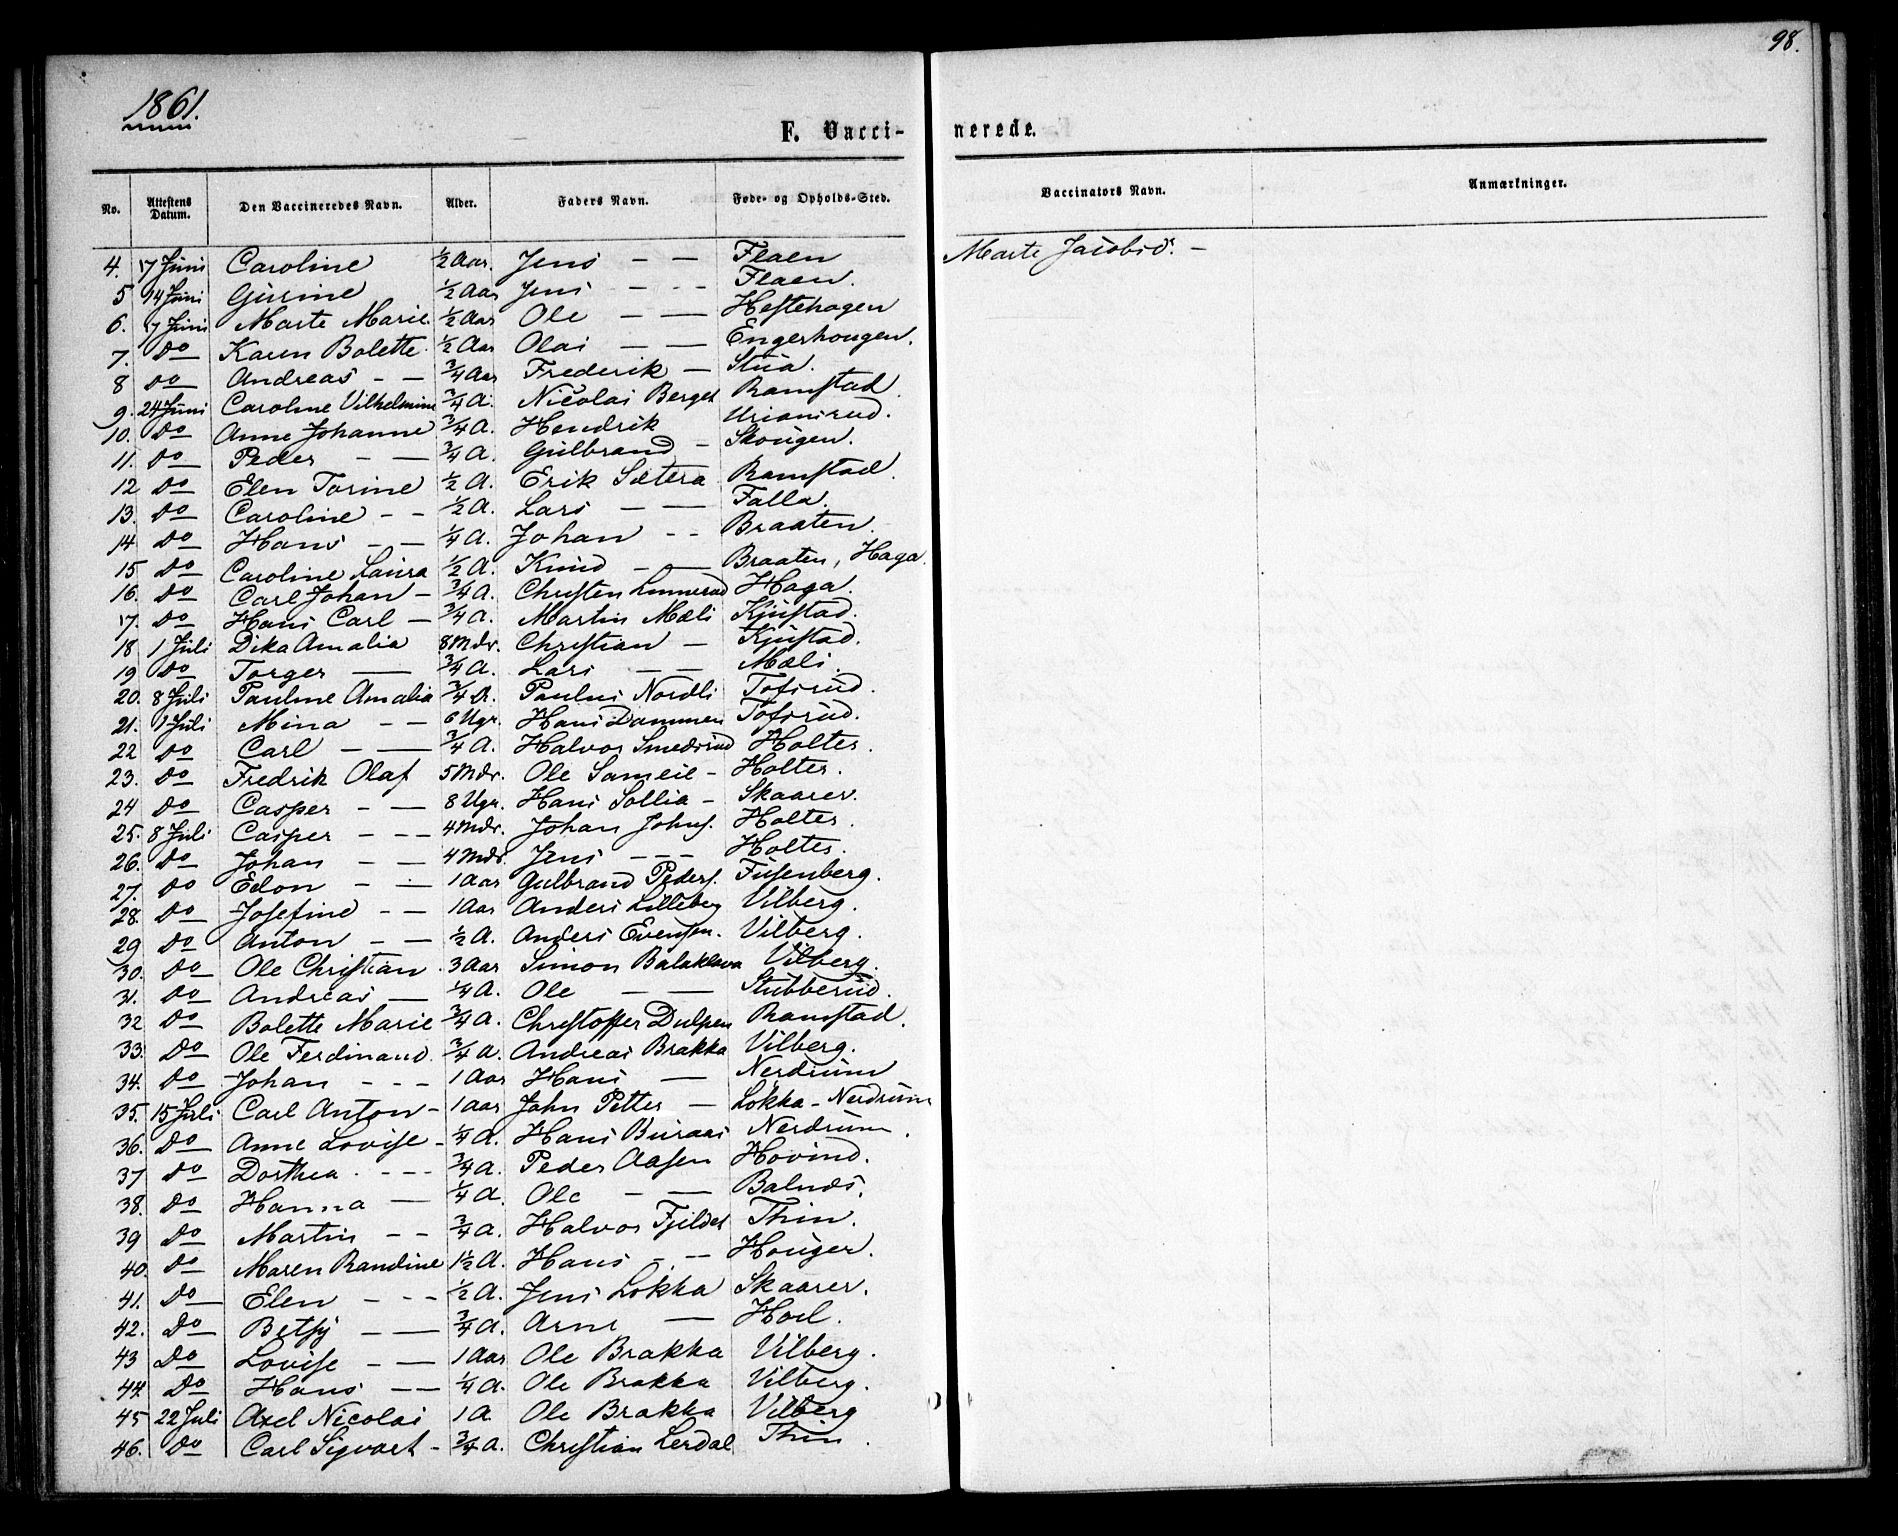 98.
1861.
F. Vacci-
nerede.
No. Attestens Datum. Den Vaccineredes Navn. Alder. Faders Navn. Føde- og Opholds-Sted. Vaccinators Navn. Anmærkninger.
4. 17 Juni Caroline ½ Aar. Jens — — Flaen Marte Jacobsd. —
5 14 Juni Gurine ½ Aar Jens — - - Flaen.
6. 17 Juni Marte Marie ½ Aar Ole — — Hestehagen
7. Do Karen Bolette ½ Aar Olai — — Engerhougen.
8 Do Andreas - — ¾ Aar Frederik — Stua.
9. 24 Juni Caroline Vilhelmine ¾ A. Nicolai Berget Ramstad
10. Do Anne Johanne ¾ A. Hendrik Urianirud.
11. Do Peder — — ¾ A. Gulbrand — Skougen.
12 Do Elen Torine ½ A. Erik Sætera Ramstad
13. Do Caroline - - ½ A. Lars — — Falla.
14 Do Hans - — ¼ A. Johan - - Braaten.
15 Do Caroline Laura ½ A. Knud — — Braaten, Haga.
16. Do Carl Johan — ¾ A. Christen Linnerud Haga.
17. Do Hans Carl — ¾ A. Martin Mæli Kjustad.
18 1 Juli Dika Amalia 8 Mdr. Christian — Kjustad.
19 Do Torger — ¾ A. Lars — — Mæli.
20. 8 Juli Pauline Amalia ¾ A. Paulus Nordli Tofsrud.
21. 1 Juli Mina - — 6 Ugr. Hans Dammen Tofsrud.
22 Do Carl — — ¾ A. Halvor Smedsrud Holter.
23. Do Fredrik Olaf 5 Mdr. Ole Sameie - Holter.
24 Do Casper - — 8 Ugr. Hans Sollia - Skaarer.
25. 8 Juli Casper - - — 4 Mdr. Johan Johns. Holter.
26. Do Johan — — 4 Mdr. Jens - - - Holter.
27. Do Edon - — 1 Aar Gulbrand Peders. Fusenberg.
28. Do Josefine - — 1 Aar Anders Lilleberg Vilberg.
29 Do Anton - — ½ A. Anders Evensen. Vilberg.
30. Do Ole Christian 3 Aar Simon Balaklava Vilberg.
31. Do Andreas — ¼ A. Ole — — Stubberud.
32 Do Bolette Marie ¾ A. Christoffer Dulpen Ramstad.
33. Do Ole Ferdinand. ¾ A. Andreas Brakka Vilberg.
34. Do Johan - - - 1 Aar Hans — Nerdrum
35. 15 Juli Carl Anton - 1 Aar John Petter — Løkka - Nerdrum
36. Do Anne Lovise - ¼ A. Hans Buraas Nerdrum.
37 Do Dorthea. - - - ¾ A. Peder Aasen Hovind.
38. Do Hanna — ¼ A. Ole - — Balnæs.
39 Do Martin - - ¾ A. Halvor Fjeldet Thin.
40. Do Maren Randine 1½ A. Hans - — Houger.
41. Do Elen - - - ½ A. Jens Løkka Skaarer.
42. Do Betsy — — ¾ A. Arne — Hoel.
43 Do Lovise - — 1 Aar Ole Brakka Vilberg.
44. Do Hans — — ¼ A. Ole Brakka Vilberg.
45 22 Juli Axel Nicolai 1 A. Ole Brakka Vilberg
46. Do Carl Sigvart - ¾ A. Christian Lerdal Thin.